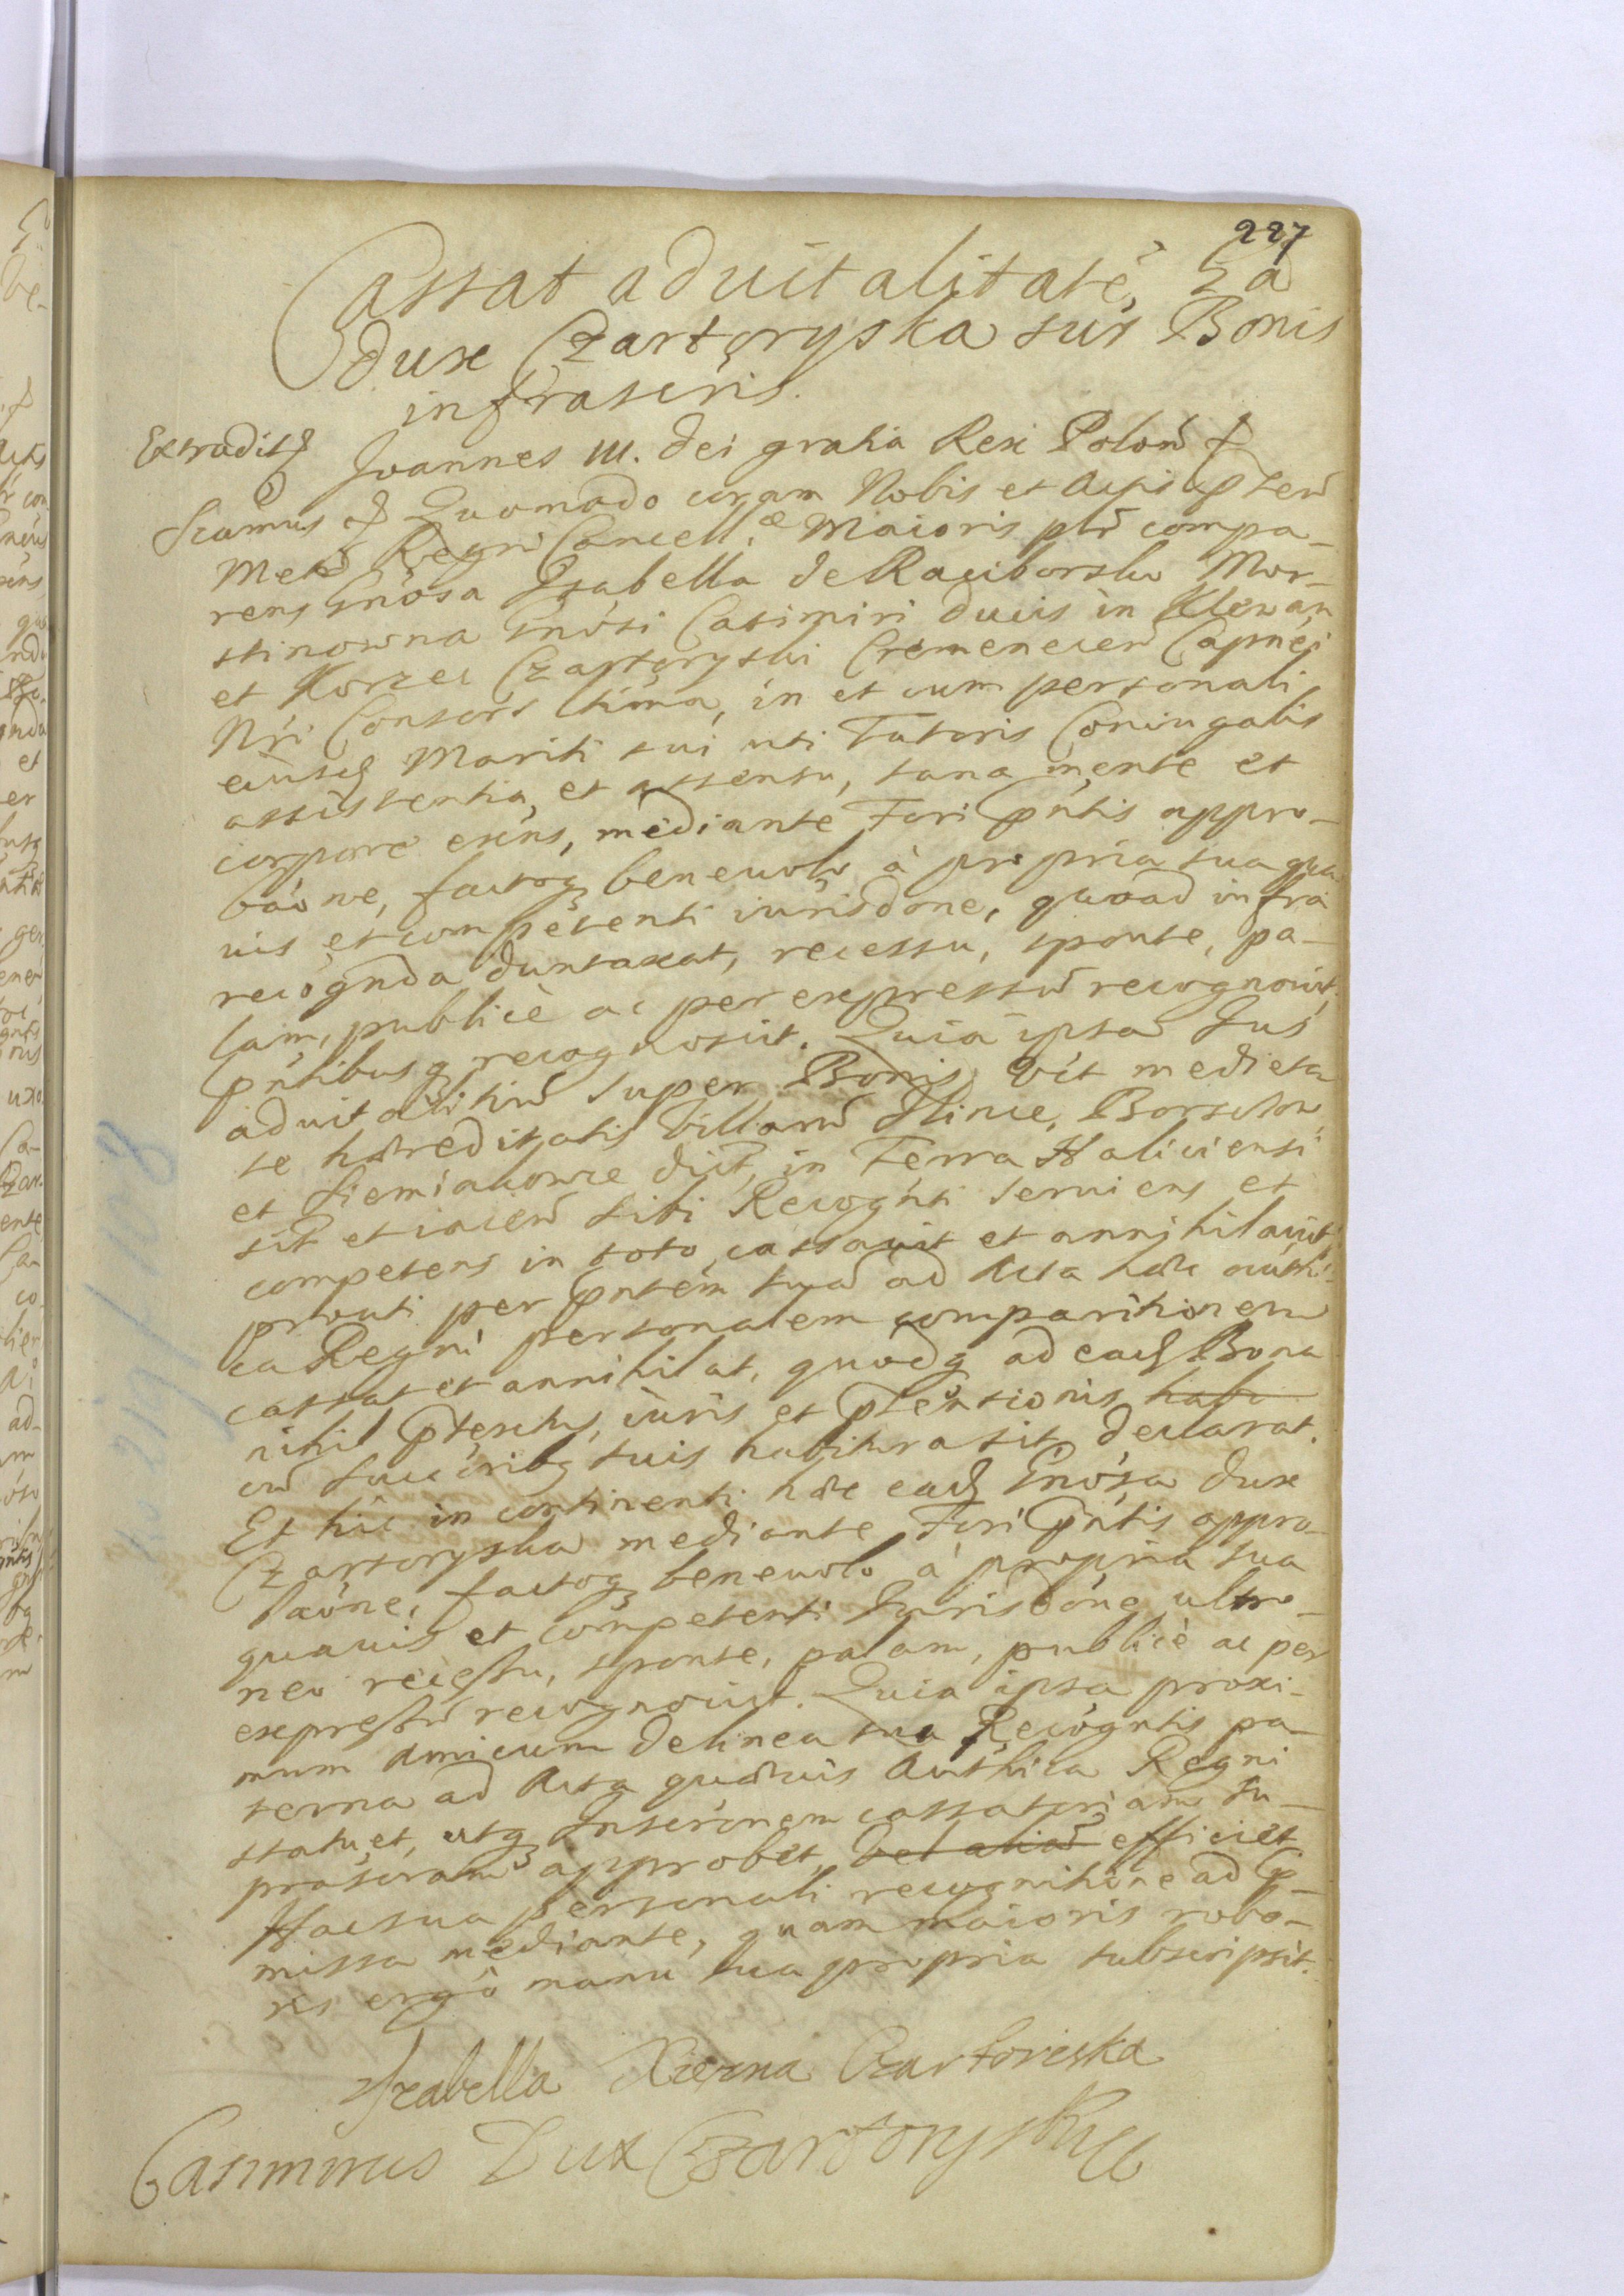 227
Cassat aduitalitatē Gā
dux Czartoryska sup Bonis
infrascris.
Extradit
Joannes III. Dei gratia Rex Polon̄
Scamus Quomodo coram Nobis et Actis
Regni Cancell. æ Maioris compa-
rens Gnosa Izabella de Raciborsko Mor-
stinowna Gnosi Casimiri ducis in Klewan
et Korzec Czartoryski Cremenecen̄ Capnei
Nri Consors ltima, in et cum personali
eiusd Mariti sui uti Tutoris Coniugalis
assistentia, et assensu, sana mente et
corpore exns, mediante Fori pntis appro-
baone, factoq beneuolo à propria sua qua
uis et competenti iurisdone, quoad infra
recognda duntaxat, recessu, sponte, pa-
lam, publicè ac per expressū recognouit,
pntibusq recognoscit. Quia ipsa Jus
aduitalitiū super Bonis, vēt medieta
te hæreditatis Villarū Ilince, Borsckow
et Siemiakowce dict, in Terra Haliciensi
sit et iacen̄ sibi Recognti seruiens et
competens in toto cassauit et annihilauit,
prouti per pntem suā ad Acta hæc authi-
ca Regni personalem comparitionem
cassat et annihilat, quodq ad ead Bona
nihil ptextus, iuris et ptensionis habe
cū succribq suis habitura sit, declarat.
Et hic in continenti hæc ead Gnosa Dux
Czartoryska mediante Fori pntis appro-
baōne, factoq beneuolo à propria sua
quauis et competenti Jurisdone ultro-
neo recessu, sponte, palam, publicè ac per
expressū recognouit. Quia ipsa proxi-
mum Amicum de linea sua Recogntis pa-
terna ad Acta quæuis Authica Regni
statuet, utq Inscrionem cassatoriam su-
prascram approbēt, vel aliā efficiet
Hac sua personali recognitione ad p-
missa mediante, quam maioris robo-
ris ergò manu sua propria subscripsit.
Izabella Xiezna Czartoriska
Casimirus Dux Czartoryski